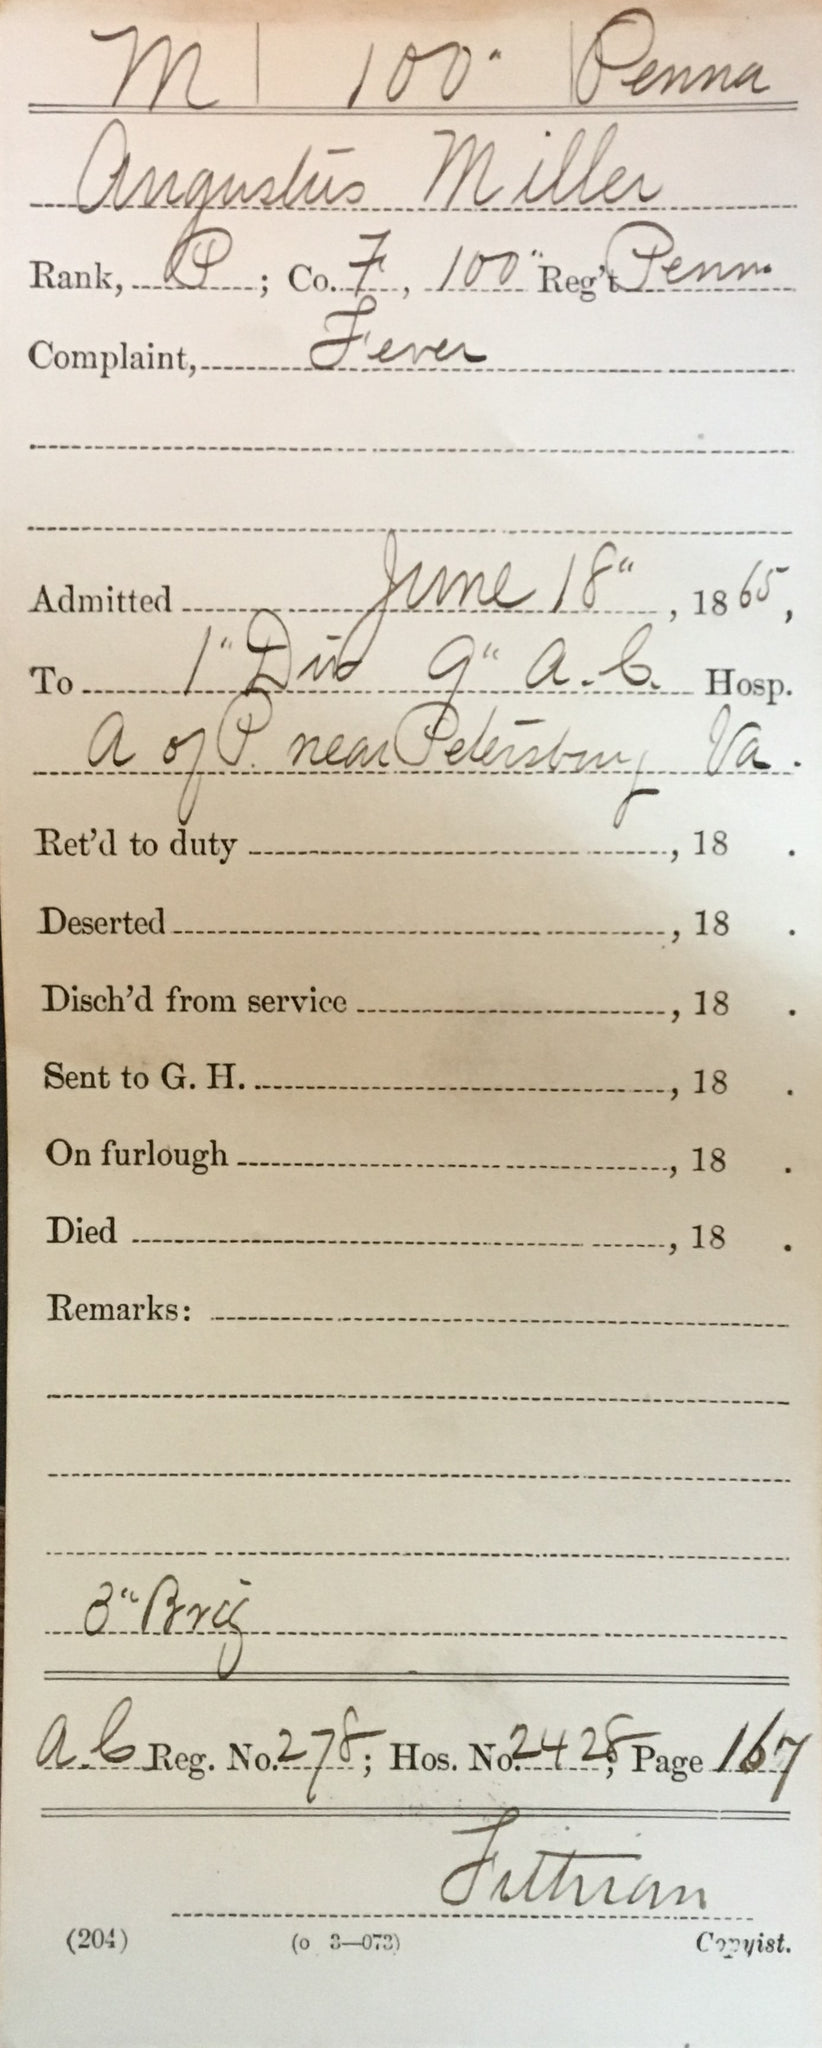 M | 100" | Penna
Augustus Miller
Rank, P; Co. F, 100" Reg't Penn.
Complaint, Fever
Admitted June 18", 1865,
To 1" Div 9" A.C. Hosp.
A of P. near Petersburg Va.
Ret'd to duty , 18 .
Deserted , 18 .
Disch'd from service , 18 .
Sent to G. H. , 18 .
On furlough , 18 .
Died , 18 .
Remarks:
3" Brig
A.C Reg. No. 278; Hos. No. 2428; Page 167
Fithian
(204) (o 3—073) Copyist.